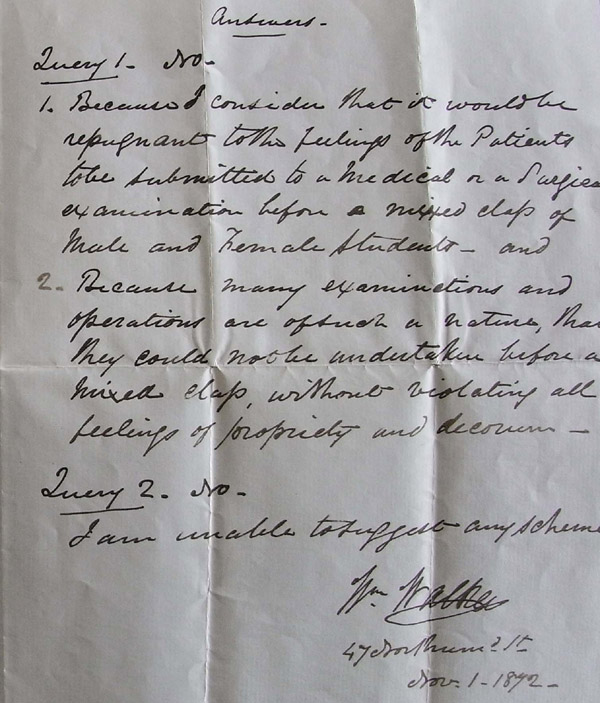 Answers -
Query 1. No -
1. Because I consider that it would be
repugnant to the feelings of the Patients
to be submitted to a Medical or a Surgica
examination before a mixed class of
Male and Female Students - and
2. Because many examinations and
operations are of such a nature, tha
they could not be undertaken before a
mixed class, without violating all
feelings of propriety and decorum -
Query 2. No -
I am unable to suggest any scheme
Wm. Walker
47 Northumd. St
Nov. 1 - 1872 -